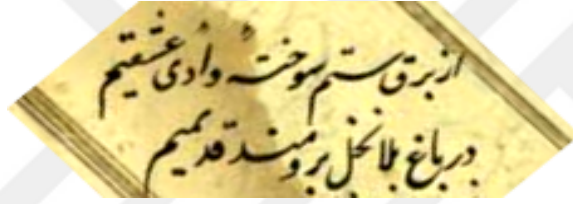 از برق ستم سوخته وادی عشقیم
در باغ بلا نخل برومند قدیمیم